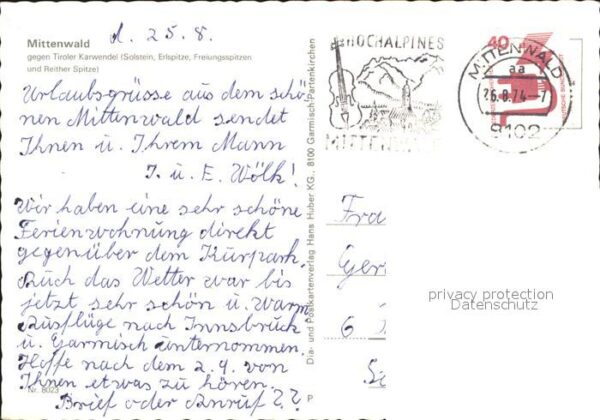 d. 25.8.
Mittenwald
gegen Tiroler Karwendel (Solstein, Erlspitze, Freiungsspitzen
und Reither Spitze)
Urlaubsgrüsse aus dem schö-
nen Mittenwald sendet
Ihnen u. Ihrem Mann
I. u. E. Wölk!
Wir haben eine sehr schöne
Ferienwohnung direkt
gegenüber dem Kurpark.
Auch das Wetter war bis
jetzt sehr schön u. warm
Ausflüge nach Innsbruck
u. Garmisch unternommen.
Hoffe nach dem 2.9. von
Ihnen etwas zu hören.
Brief oder Anruf??
Nr. 8023
Dia- und Postkartenverlag Hans Huber KG., 8100 Garmisch-Partenkirchen
P
HOCHALPINES
MITTENWALD
MITTENWALD
aa
26.8.74--7
8102
40
Fra
Ger
6
privacy protection
Datenschutz